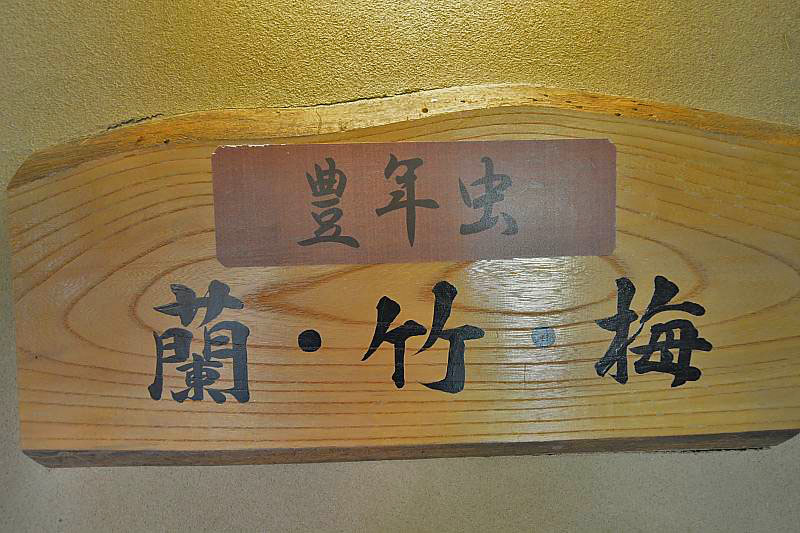 豊年虫
蘭・竹・梅